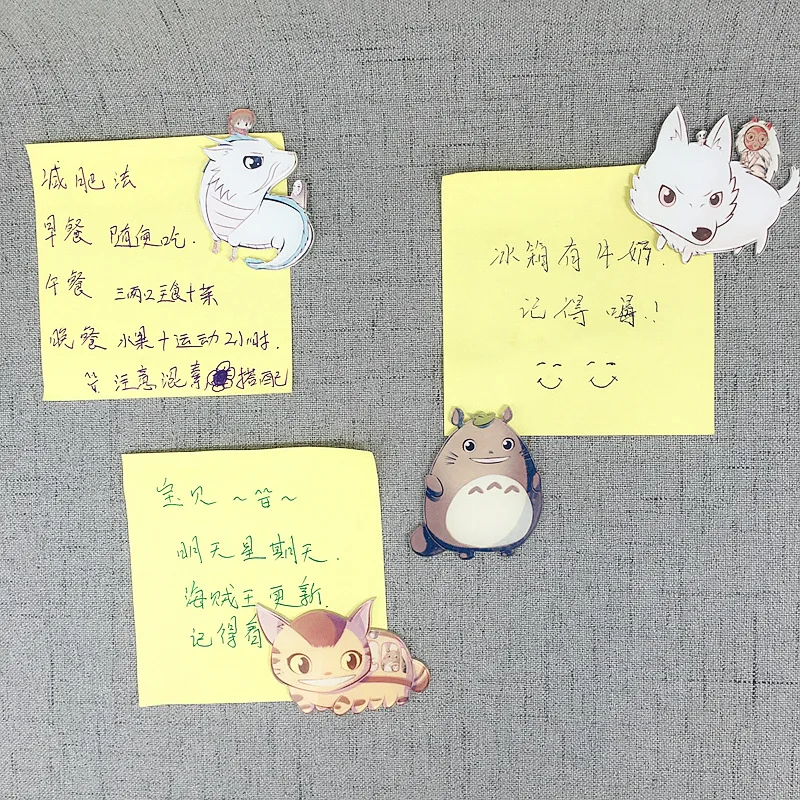 减肥法
早餐 随便吃.
午餐 三两主食+菜
晚餐 水果+运动2小时.
注意混素搭配
冰箱有牛奶.
记得喝.!
宝贝~~
明天星期天.
海贼王更新.
记得看